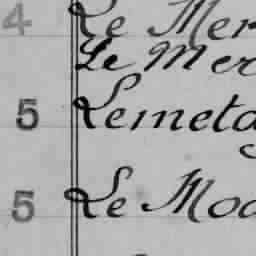 4 Le Mer
Le Mer
5 Lemeta
5 Le Moo